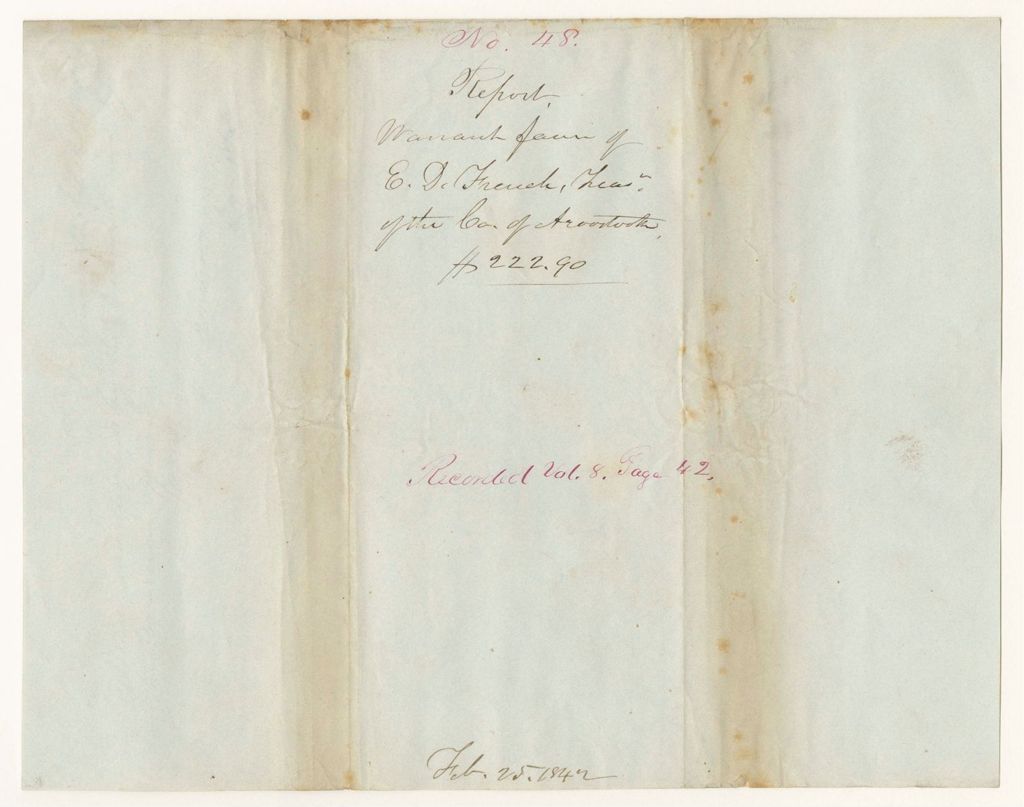 No. 48.
Report,
Warrant favor of
E. D. French, Treasr.
of the Co. of Aroostook,
$222.90
Recorded Vol. 8. Page 42,
Feb. 25. 1842